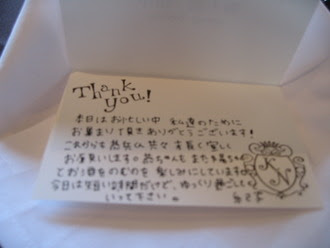 Thank
you!
本日はお忙しい中 私達のために
お集まり頂きありがとうございます!
これからも 共々 末長く宜しく
お願いします。ちゃんも またちゃん
とお酒をのむのを楽しみにしています。
今日は短い時間だけど、ゆっくり過ごして
いって下さい。
K
N